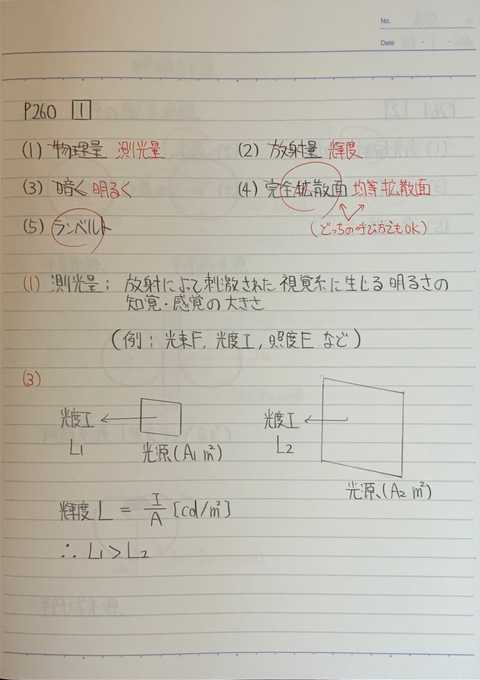 No.
Date
P260 1
(1) 物理量 測光量 (2) 放射量 輝度
(3) 暗く 明るく (4) 完全拡散面 均等拡散面
(5) ランベルト (どっちの呼び方でもOK)
(1) 測光量: 放射によって刺激された視覚系に生じる明るさの
知覚・感覚の大きさ
(例: 光束F, 光度I, 照度E など)
(3)
光度I 光度I
L1 L2
光源(A1 m²)
光源(A2 m²)
輝度 L = I/A [cd/m²]
∴ L1 > L2